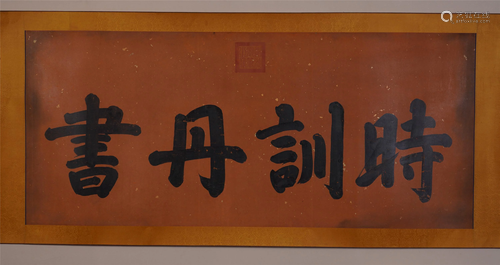 時訓丹書